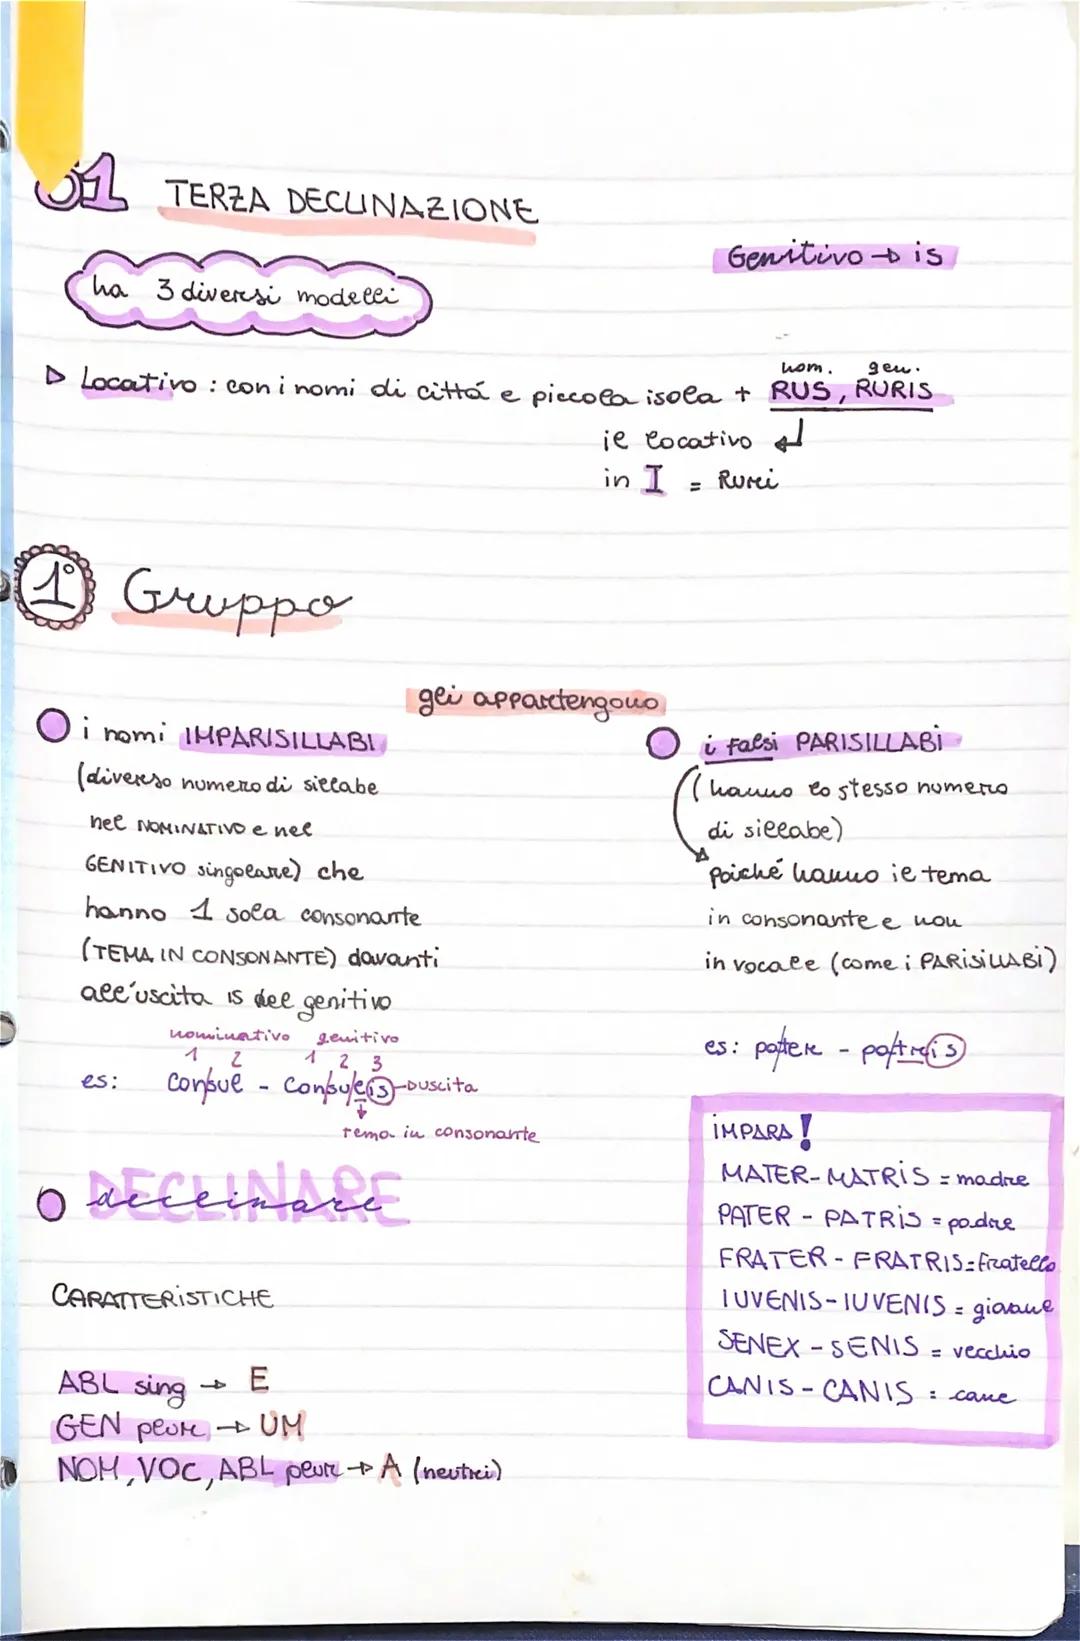 01 TERZA DECLINAZIONE
Genitivo → is
ha 3 diversi modelli
nom. gen.
▷ Locativo : con i nomi di cittá e piccola isola + RUS, RURIS
il locativo ↲
in I = Ruri
1° Gruppo
gli appartengono
i nomi IMPARISILLABI
(diverso numero di sillabe
nel NOMINATIVO e nel
GENITIVO singolare) che
hanno 1 sola consonante
(TEMA IN CONSONANTE) davanti
all'uscita is del genitivo
nominativo genitivo
1 2 1 2 3
es: Con/sul - Con/su/lis → uscita
tema in consonante
i falsi PARISILLABI
(hanno lo stesso numero
di sillabe)
poiché hanno il tema
in consonante e non
in vocale (come i PARISILLABI)
es: pa/ter - pa/tris
IMPARA!
MATER - MATRIS = madre
PATER - PATRIS = padre
FRATER - FRATRIS = fratello
IUVENIS - IUVENIS = giovane
SENEX - SENIS = vecchio
CANIS - CANIS = cane
DECLINARE
declinare
CARATTERISTICHE
ABL sing → E
GEN plur → UM
NOM, VOC, ABL plur → A (neutri)